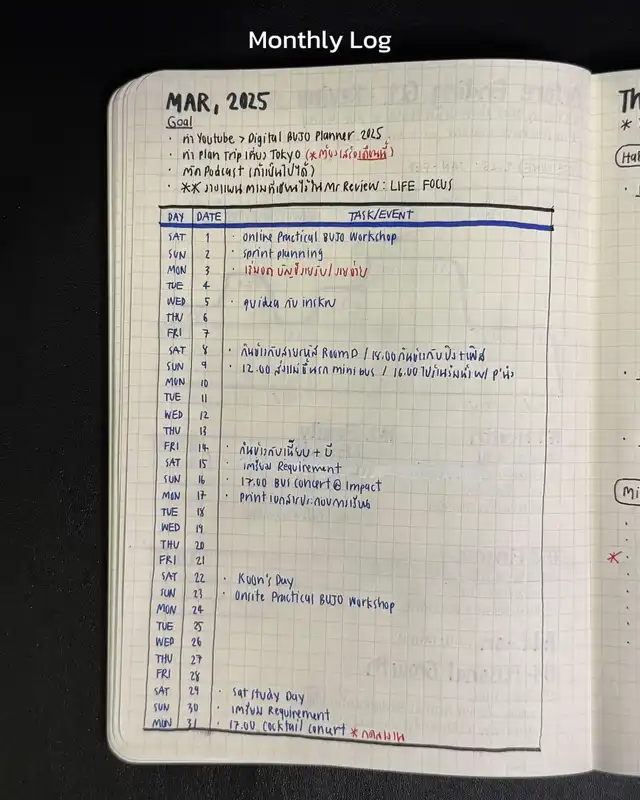 Monthly Log
MAR, 2025
Goal
· ทำ Youtube > Digital BUJO Planner 2025
· ทำ Plan Trip เที่ยว Tokyo (*ต้องเสร็จเดือนนี้)
· Podcast (ถ้าเป็นไปได้)
· ** วางแผน ตามที่เขียนไว้ใน Mr Review : LIFE FOCUS
DAY DATE TASK/EVENT
SAT 1 · Online Practical BUJO Workshop
SUN 2 · sprint planning
MON 3 · บัญชีรายรับ/รายจ่าย
TUE 4
WED 5 · คุย idea กับ
THU 6
FRI 7
SAT 8 · กินข้าวกับสายรหัส Room D / 18.00 กินข้าวกับ
SUN 9 · 12.00 ส่งแม่ขึ้นรถ minibus / 16.00 w/ P'
MON 10
TUE 11
WED 12
THU 13
FRI 14 · กินข้าวกับเนี๊ยบ + บี
SAT 15 · เตรียม Requirement
SUN 16 · 17.00 BUS Concert @ Impact
MON 17 · print เอกสารประกอบการเรียน
TUE 18
WED 19
THU 20
FRI 21
SAT 22 · Koon's Day
SUN 23 · Onsite Practical BUJO Workshop
MON 24
TUE 25
WED 26
THU 27
FRI 28
SAT 29 · Sat Study Day
SUN 30 · เตรียม Requirement
MON 31 · 17.00 cocktail concert *
Th
*
Ha
Mi
*